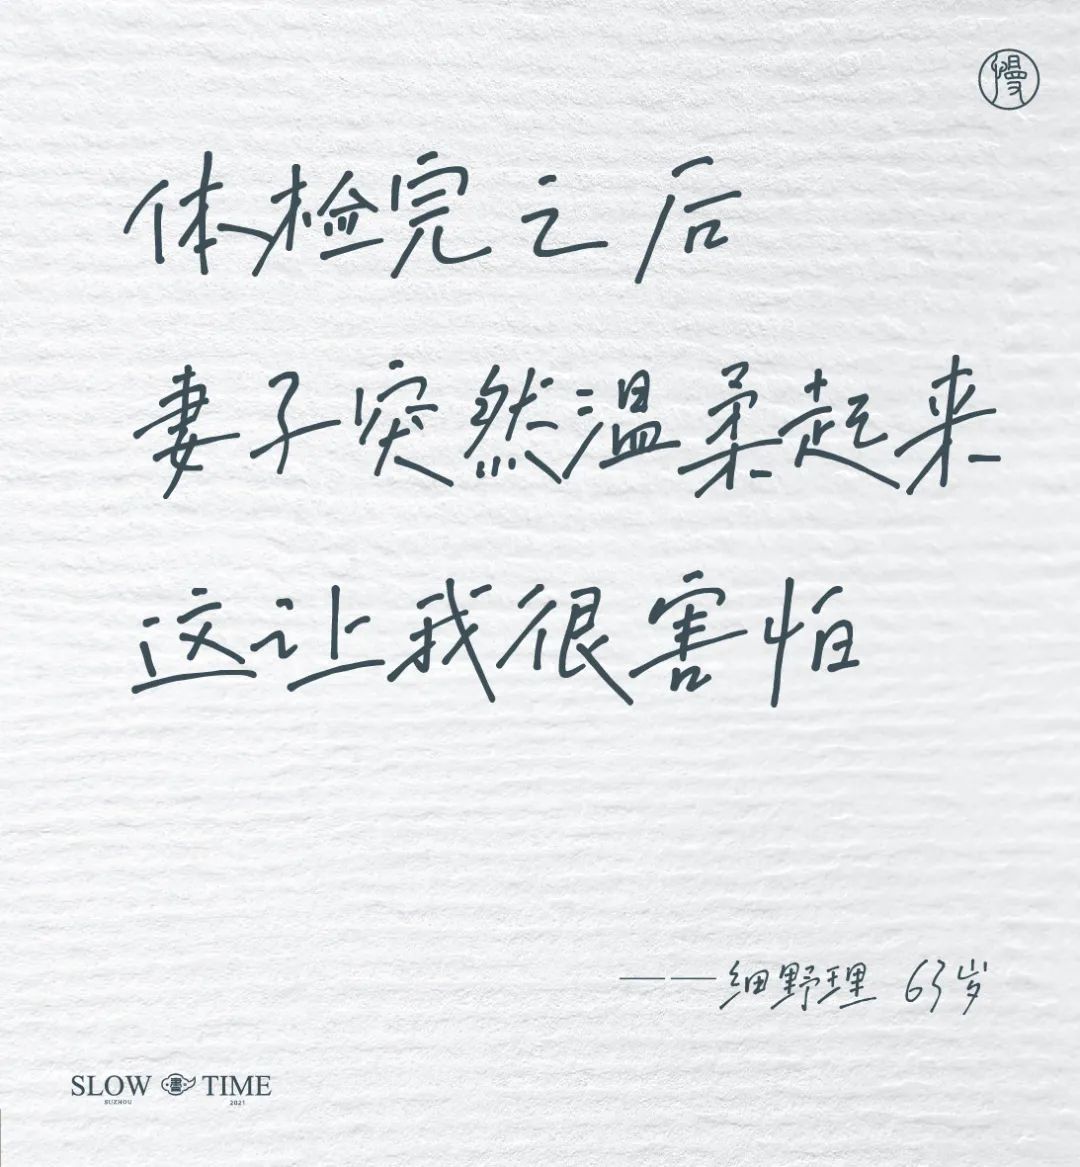 慢
体检完之后
妻子突然温柔起来
这让我很害怕
——细野理 63岁
SLOW 書 TIME
SUZHOU 2021